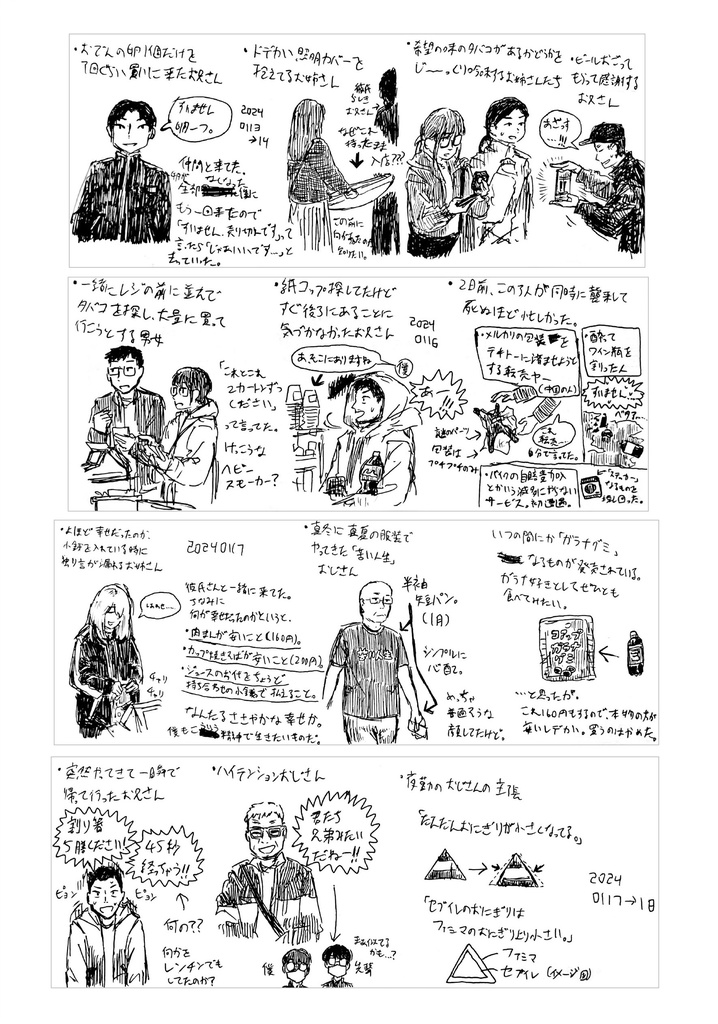 ・おでんの卵1個だけを
1回ぐらい買いに来たお兄さん
すいません
卵一つ。
2024
0113
→14
仲間と来てた。
もう一回来たので
「すいません、売り切れです」って
言ったら「じゃあいいです…」と
去っていった。
・ドデカい照明カバーを
抱えてるお姉さん
彼氏
らしき
お兄さん
なぜこれ
持ったまま
入店???
この前に
何があったのか
知りたい。
・希望の味のタバコがあるかどうかを
じ〜〜っくり吟味するお姉さんたち
・ビールおごって
もらって感謝する
お兄さん
あざっす
…!!!
・一緒にレジの前に並んで
タバコを探し、大量に買って
行こうとする男女
「これとこれ
2カートンずつ
ください」
って言ってた。
けっこうな
ヘビー
スモーカー?
・紙コップ探してたけど
すぐ後ろにあることに
気づかなかったお兄さん
2024
0116
あ、そこにありますね
僕
あ…!!
・2日前、この3人が同時に襲来して
死ぬほど忙しかった。
・メルカリの包装を
テキトーに済ませようと
する転売ヤー
(中国の人)
謎のパーツ
包装は
プチプチのみ
これ
転売…
自分で言ってた。
・酔って
ワイン瓶を
割った人
すいません…
ベタァ…
・バイクの自賠責加入
とかいう滅多にやらない
サービス。初遭遇。
「ステッカー」
なるものを
探し回った。
・よほど幸せだったのか、
小銭を入れている時に
独り言が漏れるお姉さん
20240117
しあわせ…
チャリ
チャリ
彼氏さんと一緒に来てた。
ちなみに
何が幸せだったのかというと、
・肉まんが安いこと(160円)。
・カップ焼きそばが安いこと(200円)。
・ジュースのお代をちょうど
持ち合わせの小銭で払えること。
なんたるささやかな幸せか。
僕もこういう精神で生きたいものだ。
・真冬に真夏の服装で
やってきた「苦い人生」
おじさん
半袖
短パン。
(1月)
苦い人生
シンプルに
心配。
めっちゃ
普通そうな
顔してたけど。
いつの間にか「ガラナグミ」
なるものが発売されている。
ガラナ好きとしてぜひとも
食べてみたい。
コアップ
ガラナ
グミ
…と思ったが、
これ160円もするので、本物の方が
安いしデカい。買うのはやめた。
・突然やってきて一瞬で
帰って行ったお兄さん
割り箸
5膳ください!!
45秒
経っちゃう!!
ピョン
ピョン
何の??
何かを
レンチンでも
してたのか?
・ハイテンションおじさん
君たち
兄弟みたい
だねー!!
まぁ似てる
かも…?
僕
先輩
・夜勤のおじさんの主張
「だんだんおにぎりが小さくなってる。」
2024
0117→18
「セブイレのおにぎりは
ファミマのおにぎりより小さい。」
ファミマ
セブイレ (イメージ図)